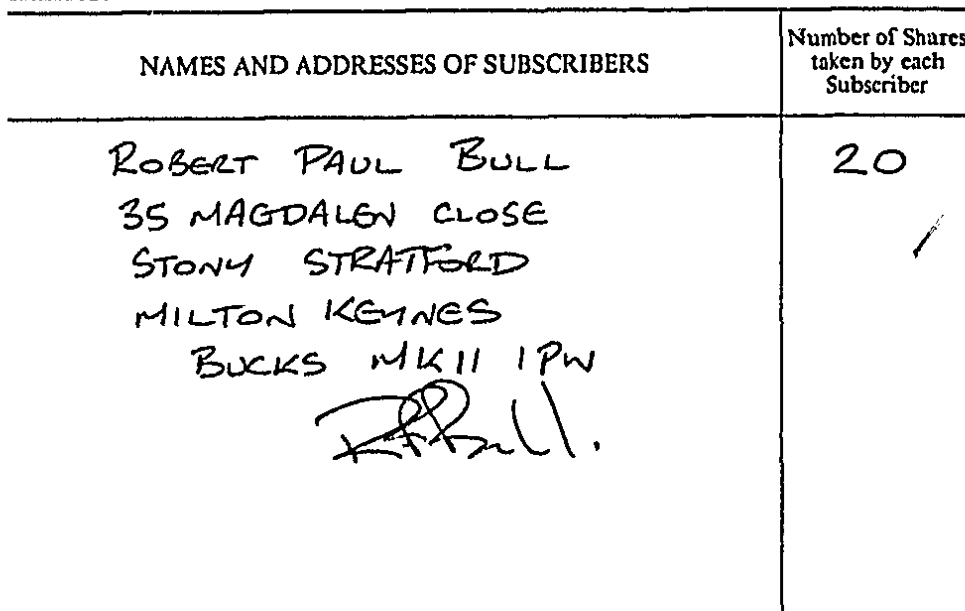 NAMES AND ADDRESSES OF SUBSCRIBERS
Number of Shares
taken by each
Subscriber
ROBERT PAUL BULL
20
35 MAGDALEN CLOSE
STONY STRATFORD
MILTON KEYNES
BUCKS MK11 1PW
RPBull.